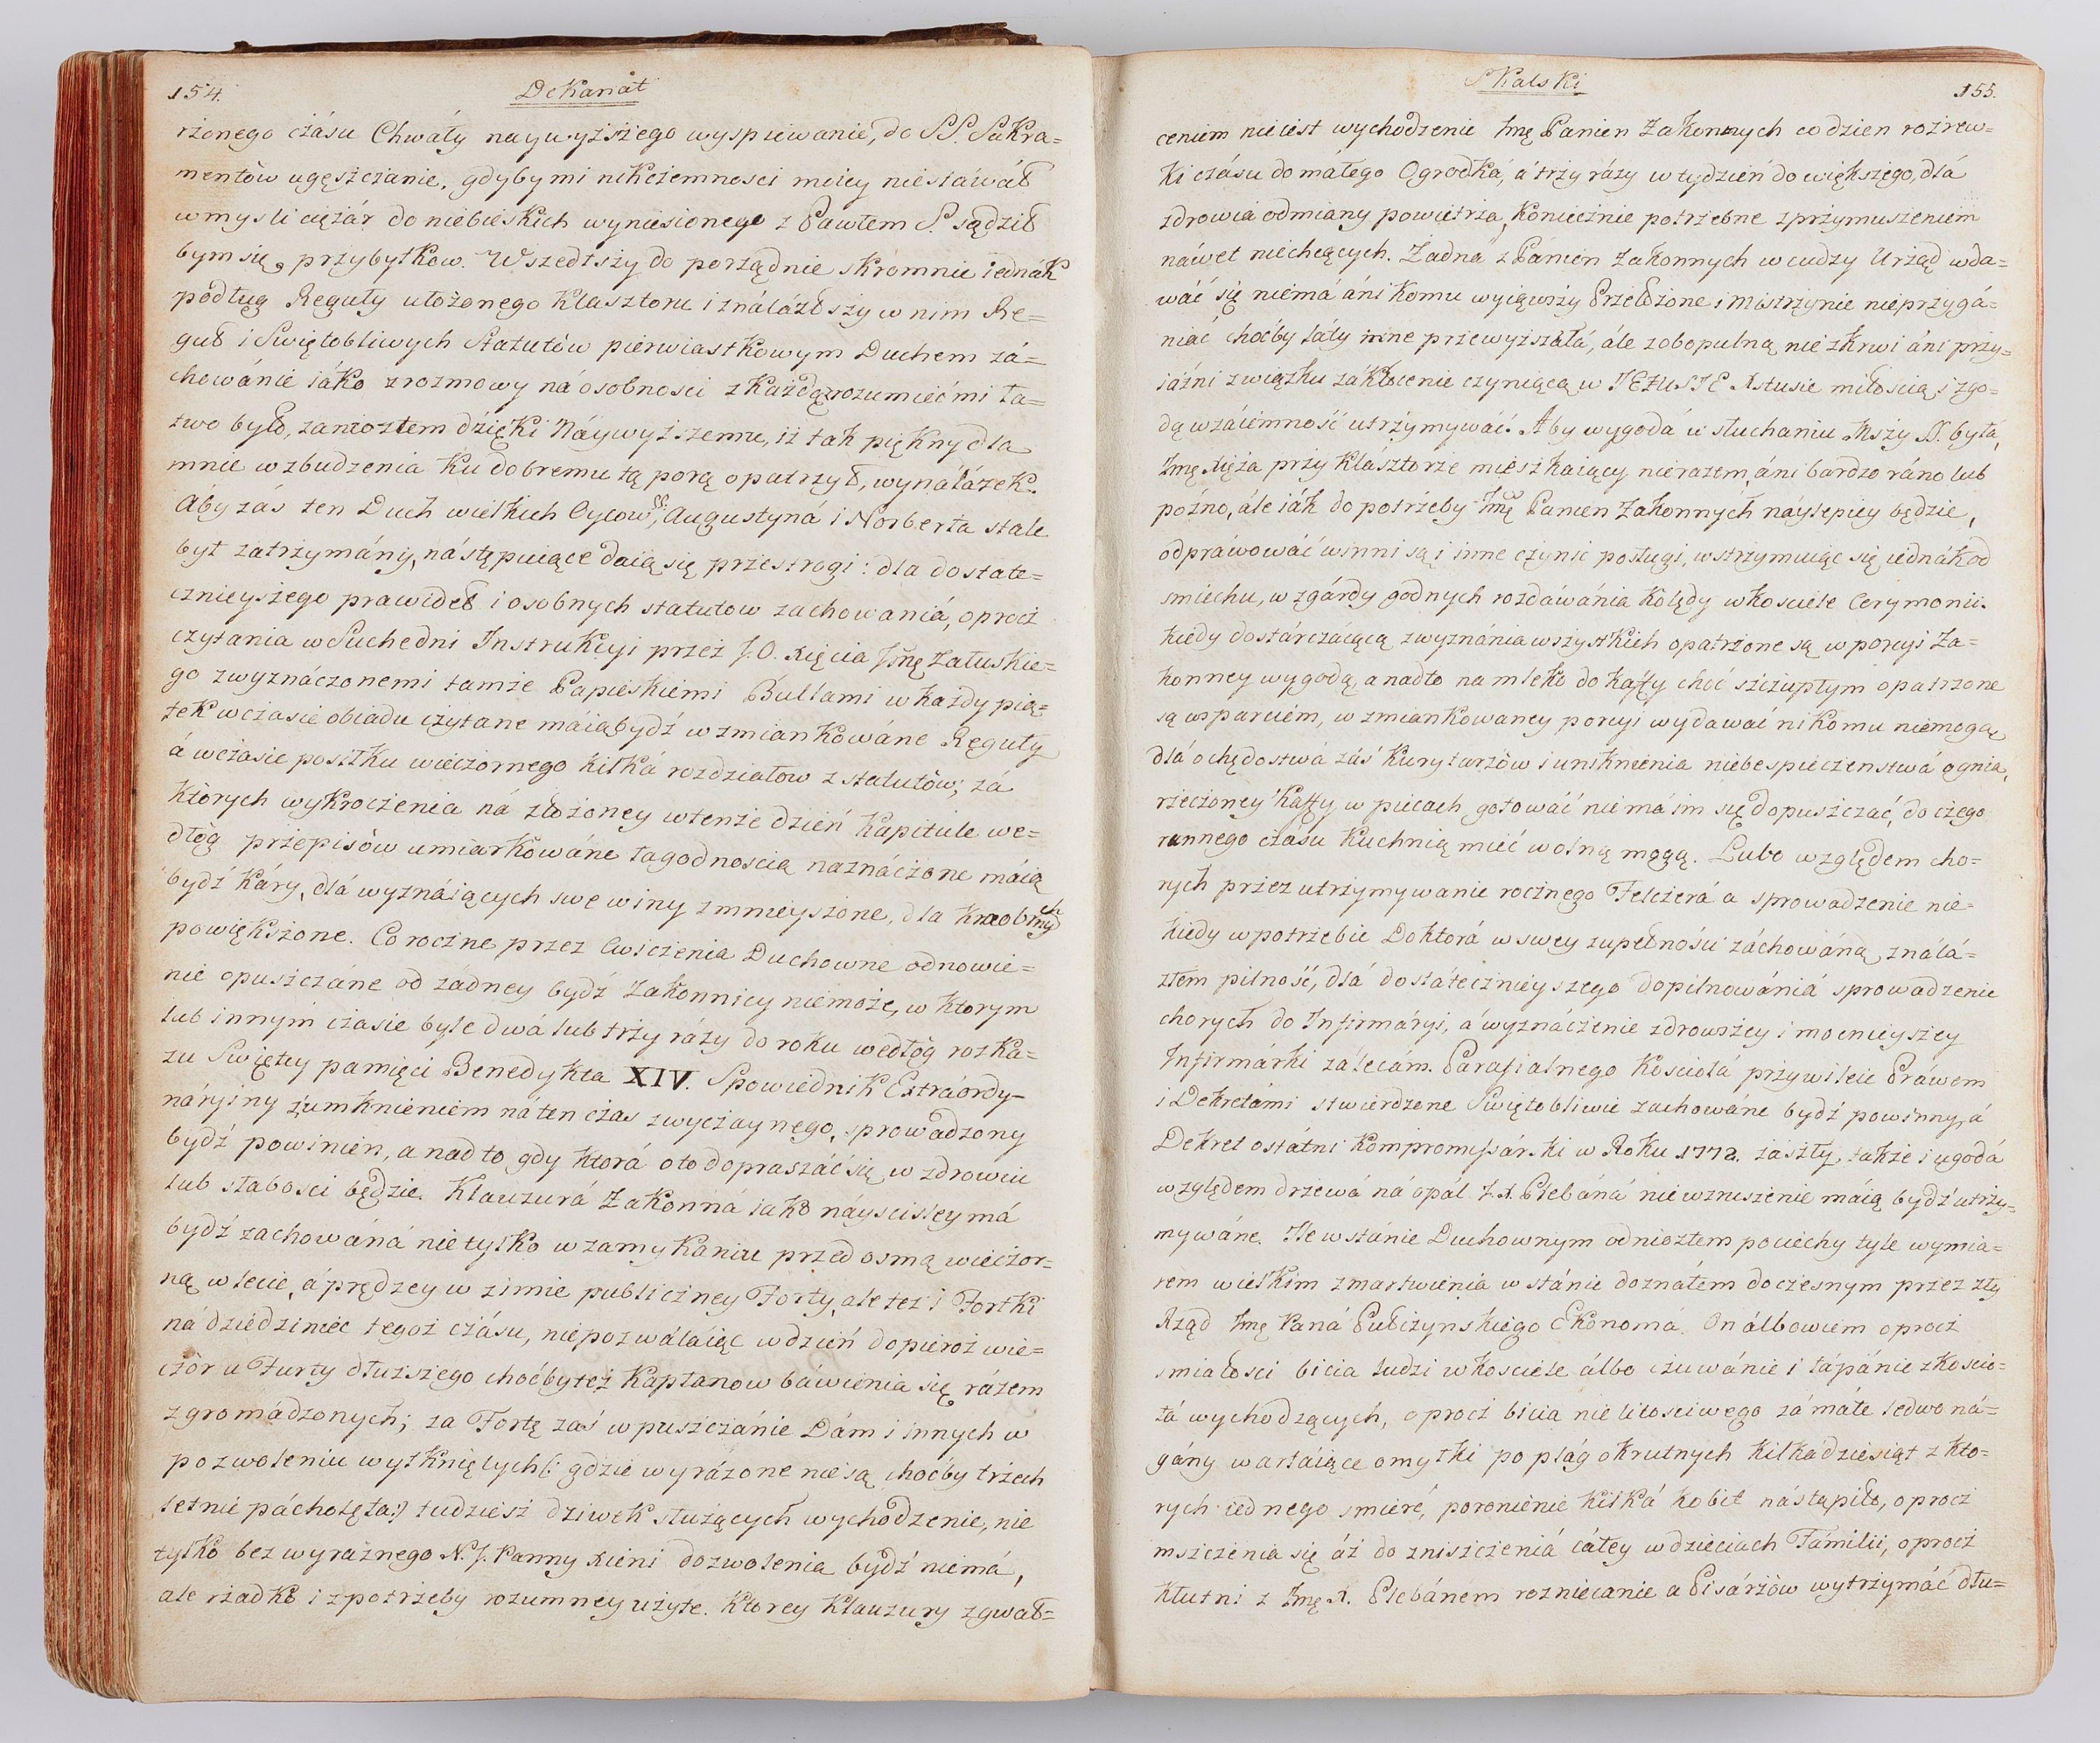 154.
Dekanat
rzonego czásu Chwáły naywyższego wyspiewanie, do SS. Sakra=
mentów uczęszczanie, gdyby mi nikczemnosci moiey niestáwáł
w mysli cięzár do niebieskich wyniesionego z Pawłem S. sądził
bym się, przybytkow. Wszedłszy do porządnie skromnie iednák
podług Reguły ułożonego Klasztoru i ználázłszy w nim Re=
guł i Swiętobliwych Statutów pierwiastkowym Duchem zá=
chowánie iáko z rozmowy ná osobnosci z Każdą zrozumieć mi ła=
two było, zaniozłem dzięki Náywyższemu, iż tak piękny dla
mnie wzbudzenia ku dobremu tą porą opatrzył, wynálázek.
Aby zás ten Duch wielkich Oycow SS. Augustyná i Norberta stale
był zatrzymány, nástępuiące daią się przestrogi: dla dostate=
cznieyszego prawideł i osobnych statutow zachowaniá, oprocz
czytania w Suchedni Instrukcyi przez J.O. Xięcia Jmę Załuskie=
go z wyznáczonemi tamże Papieskiemi Bullami w kazdy pią=
tek w czasie obiadu czytane máią bydź wzmiankowáne Reguły
á w czasie posiłku wieczornego kilká rozdziałow z statutów; zá
Których wykroczenia ná złożoney w tenże dzień Kapitule we=
dłóg przepisów umiarkowáne łagodnoscią naznáczone máią
bydź Káry, dlá wyznáiących swe winy zmnieyszone, dla krnobrnych
powiększone. Coroczne przez Cwiczenia Duchowne odnowie=
nie opuszczáne od żadney bydź Zakonnicy niemoże, w ktorym
lub innym czasie byle dwá lub trzy rázy do roku wedłóg rozka=
zu Swiętey pamięci Benedykta XIV. Spowiednik Extráordy=
náryiny z umknieniem ná ten czas zwyczaynego, sprowadzony
bydź powinien, a nadto gdy która oto dopraszáć się w zdrowiu
lub słabosci będzie. Klauzurá Zakonná iako náyscisley má
bydź zachowáná nietylko w zamykaniu przed osmą wieczor=
ną w lecie, á prędzey w zimie publiczney Forty, ale też i Fortki
ná dziedziniec tegoż czásu, niepozwálaiąc w dzień dopieroż wie=
czór u Furty dłuższego choćby też Kapłanow báwienia się rázem
zgromádzonych; za Fortę zaś wpuszczánie Dám i innych w
pozwoleniu wytkniętych (: gdzie wyrázone nie są choćby trzech
letnie pácholęta :) tudziesz dziwek służących wychodzenie, nie
tylko bez wyraznego N.J. Panny Xieni dozwolenia bydź niemá,
ale rzadko i z potrzeby rozumney użyte. Ktorey Klauzury zgwał=
Skalski
155.
ceniem nie iest wychodzenie Jmę Panien Zakonnych co dzien rozryw=
ki czásu do máłego Ogrodká, á trzy rázy w tydzień do większego, dlá
zdrowia odmiany powietrza, Koniecznie potrzebne z przymuszeniem
náwet niechcących. Żadna z Panien Zakonnych w cudzy Urząd wda=
wáć się niemá áni komu wyiąwszy Przełożone i Mistrzynie nieprzygá=
niać choćby láty inne przewyższáłá, ále zobopulną nie z krwi áni przy=
iáźni związku zákłocenie czyniącą w JEZUSIE Xstusie miłoscią i zgo=
dą wzáiemność utrzymywáć. Aby wygodá w słuchaniu Mszy S. byłá,
Jmę Xięża przy Klásztorze mieszkaiący nierazem, áni bardzo ráno lub
pożno, ále iák do potrzeby Jmę Panien Zakonnych náylepiey będzie,
odpráwowáć winni są i inne czynic posługi, wstrzymuiąc się iednák od
smiechu, wzgárdy godnych rozdáwánia Kolędy w kosciele Cerymonii.
kiedy dostárczáiącą z wyznánia wszystkich opatrzone są w porcyi Za=
konney wygodą, a nadto na mleko do kaffy choć szczupłym opatrzone
są wsparciem, wzmiankowaney porcyi wydawać nikomu niemogą
dlá ochędostwá zás Kurytarzów i uniknienia niebespieczenstwá ognia,
rzeczoney Kaffy w piecach gotowáć nie má im się dopuszczać, do czego
rannego czásu Kuchnią mieć wolną mogą. Lubo względem cho=
rych przez utrzymywanie rocznego Felczerá a sprowadzenie nie=
kiedy w potrzebie Doktorá w swey zupełnósci záchowáną ználá=
złem pilność, dlá dostáteczniéyszego dopilnowániá sprowadzenie
chorych do Infirmáryi, á wyznáczenie zdrowszey i mocnieyszey
Infirmárki zálecám. Parafialnego Kosciołá przywileie Práwem
i Dekretámi stwierdzone Swiętobliwie zachowáne bydź powinny, á
Dekret ostátni Kompromissárski w Roku 1772. zászły, także i ugodá
względem drzewá ná opál J.X. Plebáná niewzruszenie máią bydź utrzy=
mywáne. Ile w stánie Duchownym odniozłem pociechy tyle wymia=
rem wielkim zmartwienia w stánie doznáłem doczesnym przez zły
Rząd Jmę Paná Pułczynskiego Ekonoma. On álbowiem oprocz
smiałosci bicia ludzi w kosciele álbo czuwánie i łápánie z koscio=
łá wychodzących, oprocz bicia nielitosciwego zá máłe ledwo ná=
gány wartáiące omyłki po plág okrutnych kilkadziesiąt z kto=
rych iednego smierć, poronienie kilká kobiet nástąpiło, oprocz
mszczenia się áż do zniszczeniá cáłey w dzieciach Fámilii, oprocz
kłutni z Jmę X. Plebánem rozniecanie a Pisárzów wytrzymáć dłu=